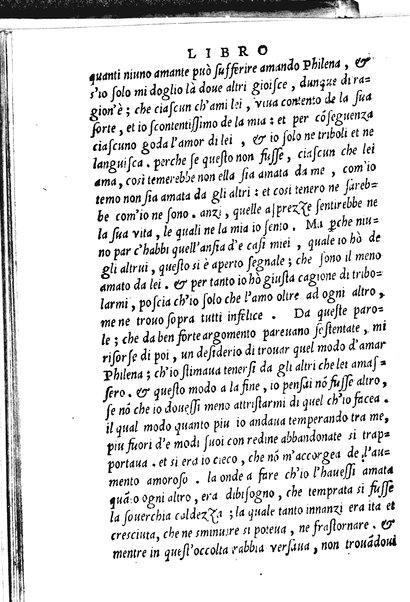 LIBRO
quanti niuno amante può sufferire amando Philena, &
s'io solo mi doglio là doue altri gioisce, dunque di ra-
gion'è; che ciascun ch'ami lei, viua contento de la sua
sorte, et io scontentissimo de la mia: et per cõseguenza
ciascuno goda l'amor di lei, & io solo ne triboli et ne
languisca. perche se questo non fusse, ciascun che lei
ama, così temerebbe non ella sia amata da me, com'io
temo non sia amata da gli altri: et così tenero ne sareb-
be com'io ne sono. anzi, quelle asprezze sentirebbe ne
la sua vita, le quali ne la mia io sento. Ma perche niu-
no par c'habbi quell'ansia d'e casi miei, quale io hò de
gli altrui, questo si è aperto segnale; che sono il meno
amato da lei. & per tanto io hò giusta cagione di tribo-
larmi, poscia ch'io solo che l'amo oltre ad ogni altro,
me ne trouo sopra tutti infelice. Da queste paro-
le; che da ben forte argomento pareuano sostentate, mi
risorse di poi, un desiderio di trouar quel modo d'amar
Philena; ch'io stimaua tenersi da gli altri che lei amas-
sero. & questo modo a la fine, io pensai nõ fusse altro,
se nõ che io douessi meno attristarmi di quel ch'io facea.
il qual modo quanto piu io andaua temperando tra me,
piu fuori d'e modi suoi con redine abbandonate si trap-
portaua. et si era io cieco, che nõ m'accorgea de l'au-
mento amoroso. la onde a fare ch'io l'hauessi amata
quãto ogni altro, era dibisogno, che temprata si fusse
la souerchia caldezza; la quale tanto innanzi era ita et
cresciuta, che ne sminuire si poteua, ne frastornare. &
mentre in quest'occolta rabbia versaua, non trouãdoui